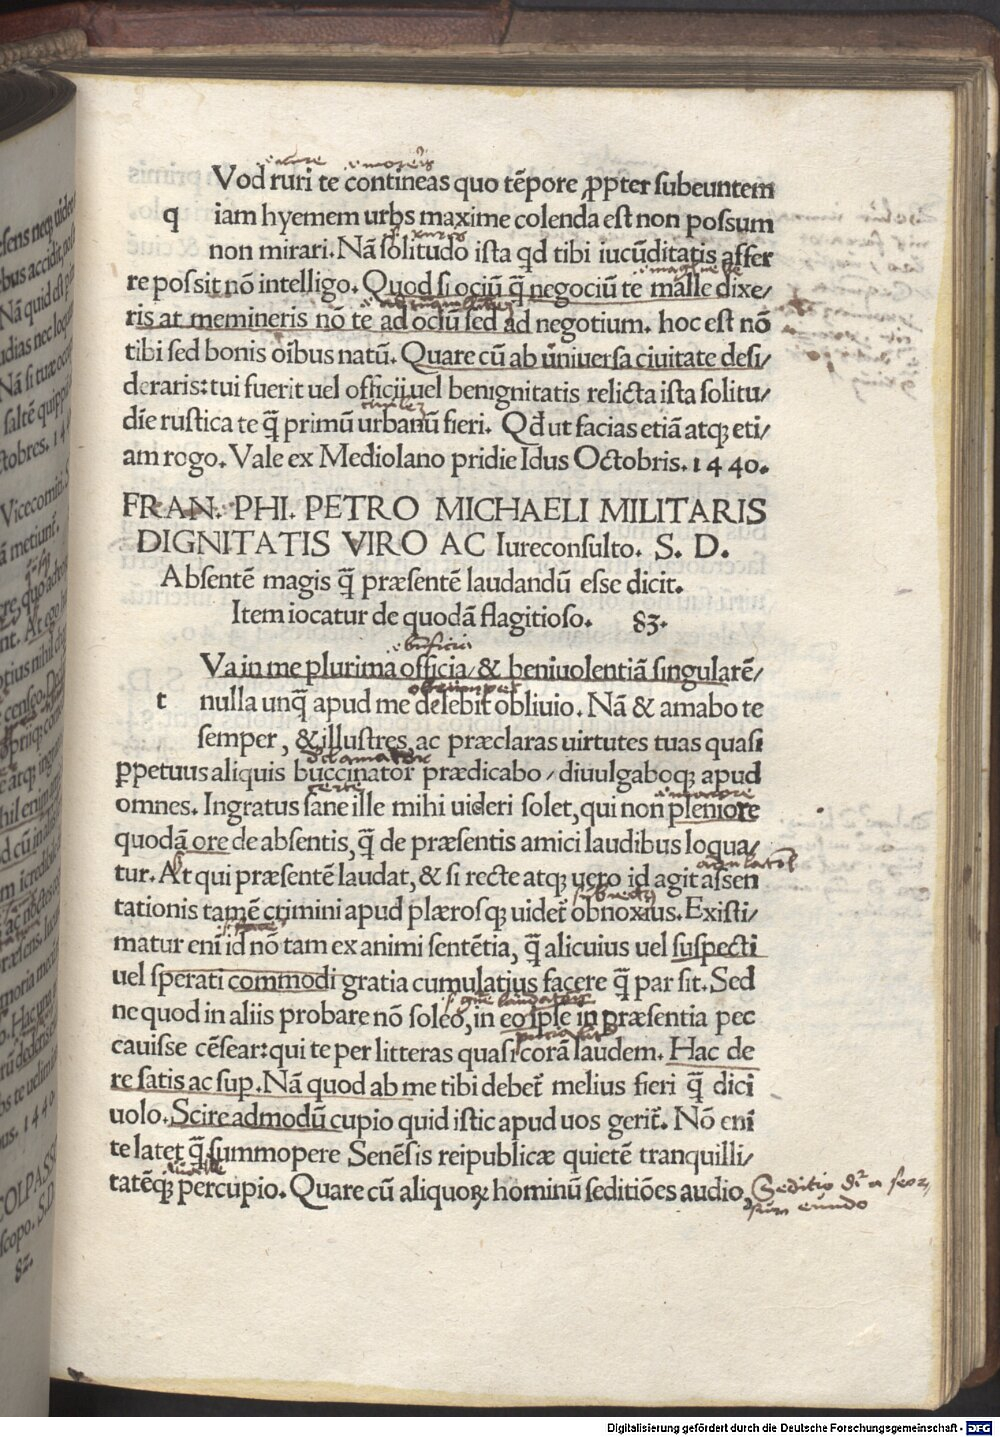 Vod ruri te contineas quo tēpore ꝓpter subeuntem
q iam hyemem urbs maxime colenda est non possum
non mirari. Nā solitudo ista qđ tibi iucūditatis affer
re possit nō intelligo. Quod si ociū q̄ negociū te malle dixe/
ris at memineris nō te ad ociū sed ad negotium. hoc est nō
tibi sed bonis oībus natū. Quare cū ab uniuersa ciuitate desi/
deraris: tui fuerit uel officii, uel benignitatis relicta ista solitu/
dīe rustica te q̄ primū urbanū fieri. Qđ ut facias etiā atqꝫ eti/
am rogo. Vale ex Mediolano pridie Idus Octobris. 1440.
FRAN. PHI. PETRO MICHAELI MILITARIS
DIGNITATIS VIRO AC Iureconsulto. S. D.
Absentē magis q̄ præsentē laudandū esse dicit.
Item iocatur de quodā flagitioso. 83.
Va in me plurima officia/ & beniuolentiā singularē/
t nulla unq̄ apud me delebit obliuio. Nā & amabo te
semper, & illustres, ac præclaras uirtutes tuas quasi
ꝑpetuus aliquis buccinator prædicabo/ diuulgaboqꝫ apud
omnes. Ingratus sane ille mihi uideri solet, qui non pleniore
quodā ore de absentis, q̄ de præsentis amici laudibus loqua/
tur. At qui præsentē laudat, & si recte atqꝫ uero id agit assen
tationis tamē crimini apud plærosqꝫ uidet̄ obnoxius. Existi/
matur eni id nō tam ex animi sentētia, q̄ alicuius uel suspecti
uel sperati commodi gratia cumulatius facere q̄ par sit. Sed
ne quod in aliis probare nō soleo, in eo ipse in præsentia pec
cauisse cēsear: qui te per litteras quasi corā laudem. Hac de
re satis ac sup. Nā quod ab me tibi debet̄ melius fieri q̄ dici
uolo. Scire admodū cupio quid istic apud uos gerit̄. Nō eni
te latet q̄ summopere Senēsis reipublicæ quietē tranquilli/
tatēqꝫ percupio. Quare cū aliquoꝝ hominū seditiōes audio,
Seditio dr̄ a seor,
sum eundo
Digitalisierung gefördert durch die Deutsche Forschungsgemeinschaft - DFG